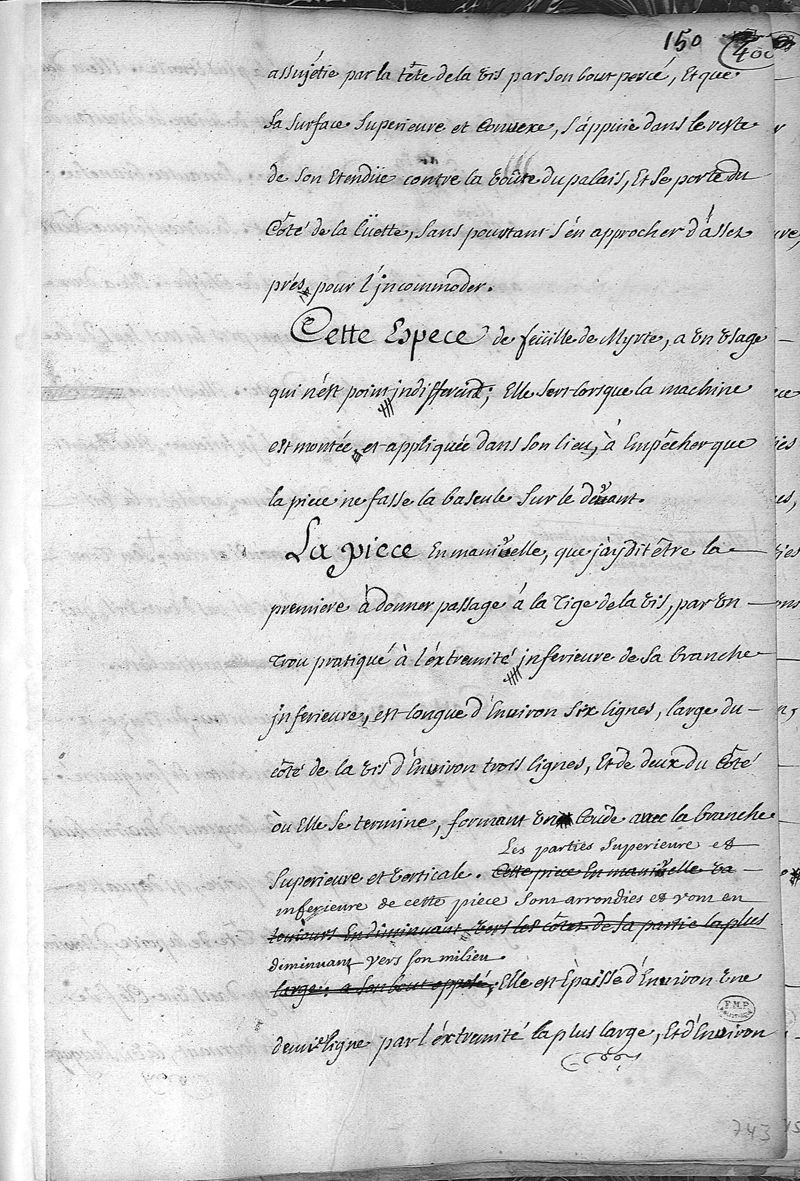 150 400
assujétie par la tête de la vis par son bout percé, Et que
Sa surface Superieure et Convexe, s'appuie dans le reste
de son Etendüe contre la voûte du palais, Et se porte du
Côté de la Lüette, sans pourtant s'en approcher d'assez
prés, pour l'jncommoder.
Cette Espece de feüille de Myrte, a vn vsage
qui n'est point jndifferent; Elle sert lorsque la machine
est montée, et appliquée dans son lieu, à Empêcher que
la piece ne fasse la bascule sur le devant.
La piece En manivelle, que j'ay dit être la
premiere à donner passage à la Tige de la vis, par vn
trou pratiqué à l'éxtremité jnferieure de sa branche
jnferieure, est longue d'Environ six lignes, large du
côté de la vis d'Environ trois lignes, Et de deux du Côté
où Elle se termine, formant vn Coûde avec la branche
Les parties Superieure et
Superieure et verticale. Cette piece En manivelle va
inferieure de cette piece sont arrondies et vont en
toujours En diminuant, vers les côtés de sa partie la plus
diminuant vers son milieu.
large, a son bout opposé, Elle est Epaisse d'Environ vne
demie ligne par l'éxtremité la plus large, Et d'Environ
743